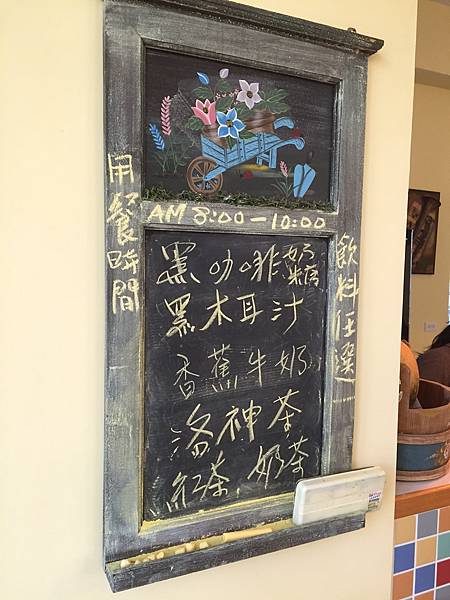 用餐時間
AM 8:00-10:00
飲料任選
黑咖啡 奶 糖
黑木耳汁
香蕉牛奶
洛神茶
紅茶.奶茶